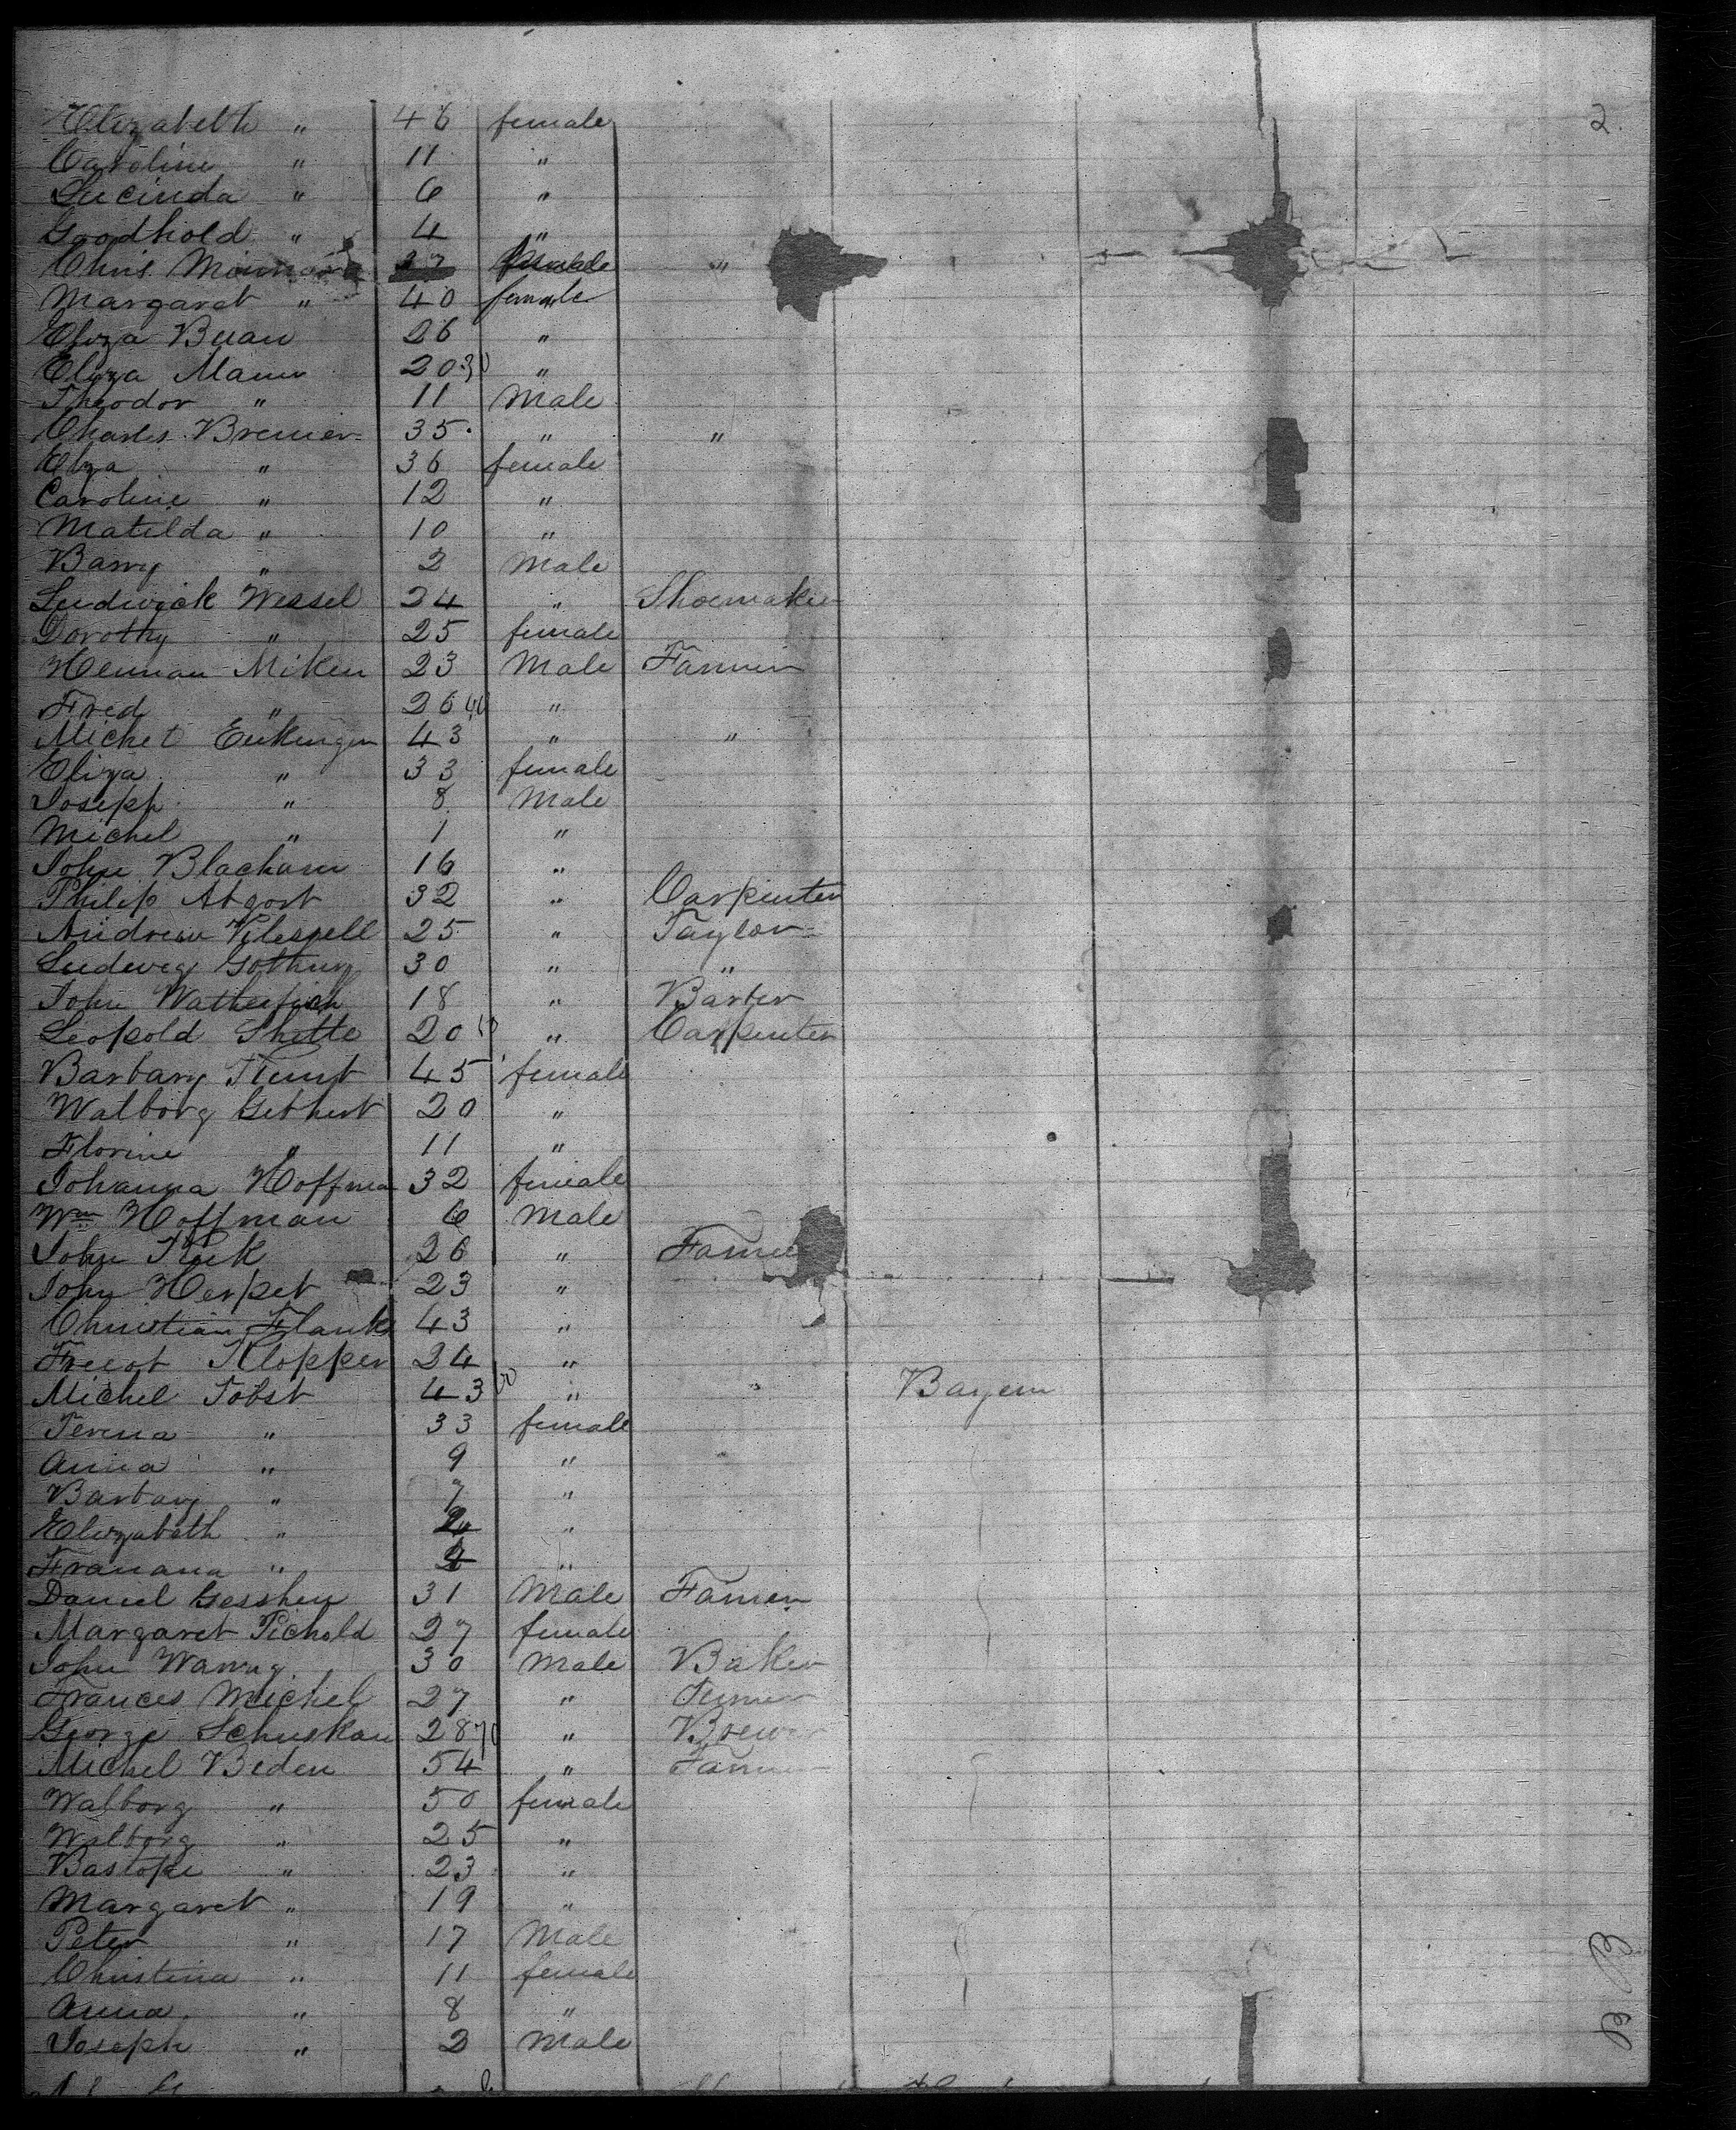 2.
Elizabeth " 46 female
Caroline " 11 "
Lucinda " 6 "
Goodhold " 4 "
Chris 27 "
Margaret " 40 female
Eliza Buan 26 "
Eliza Maun 20 30 "
Theodor " 11 Male
Charles Bremer 35 " "
Elza " 36 female
Caroline " 12 "
Matilda " 10 "
Barry " 2 Male
Ludwick Wessel 24 " Shoemaker
Dorothy " 25 female
Herman Miken 23 Male Farmer
Fred " 26 40 "
Michel Eukengen 43 " "
Eliza " 33 female
Joseph " 8 Male
Michel " 1 "
John Blacham 16 "
Philip Atgort 32 " Carpenter
Andrew 25 " Taylor
Ludwig Gothing 30 " "
John 18 " Barber
Leopold Shette 20 50 " Carpenter
Barbary 45 female
Walborg Gebhert 20 "
Florine " 11 "
Johanna Hoffma 32 female
Wm Hoffman 6 Male
John 26 " Farmer
John Herpet 23 "
Christian Flank 43 "
Klopper 24 "
Michel Jobst 43 60 " " Bayern
Teresa " 33 female
Anna " 9 "
Barbary " 7 "
Elizabeth " "
Franana " "
Daniel Gesshen 31 Male Farmer
Margaret Pichold 27 female
John Warnug 30 Male Baker
Frances Michel 27 "
George Schuskau 28 70 " Brewer
Michel Beden 54 " Farmer
Walborg " 50 female
Walborg " 25 "
Bastope " 23 "
Margaret " 19 "
Peter " 17 Male
Christina " 11 female
Anna " 8 "
Joseph " 2 Male
B B